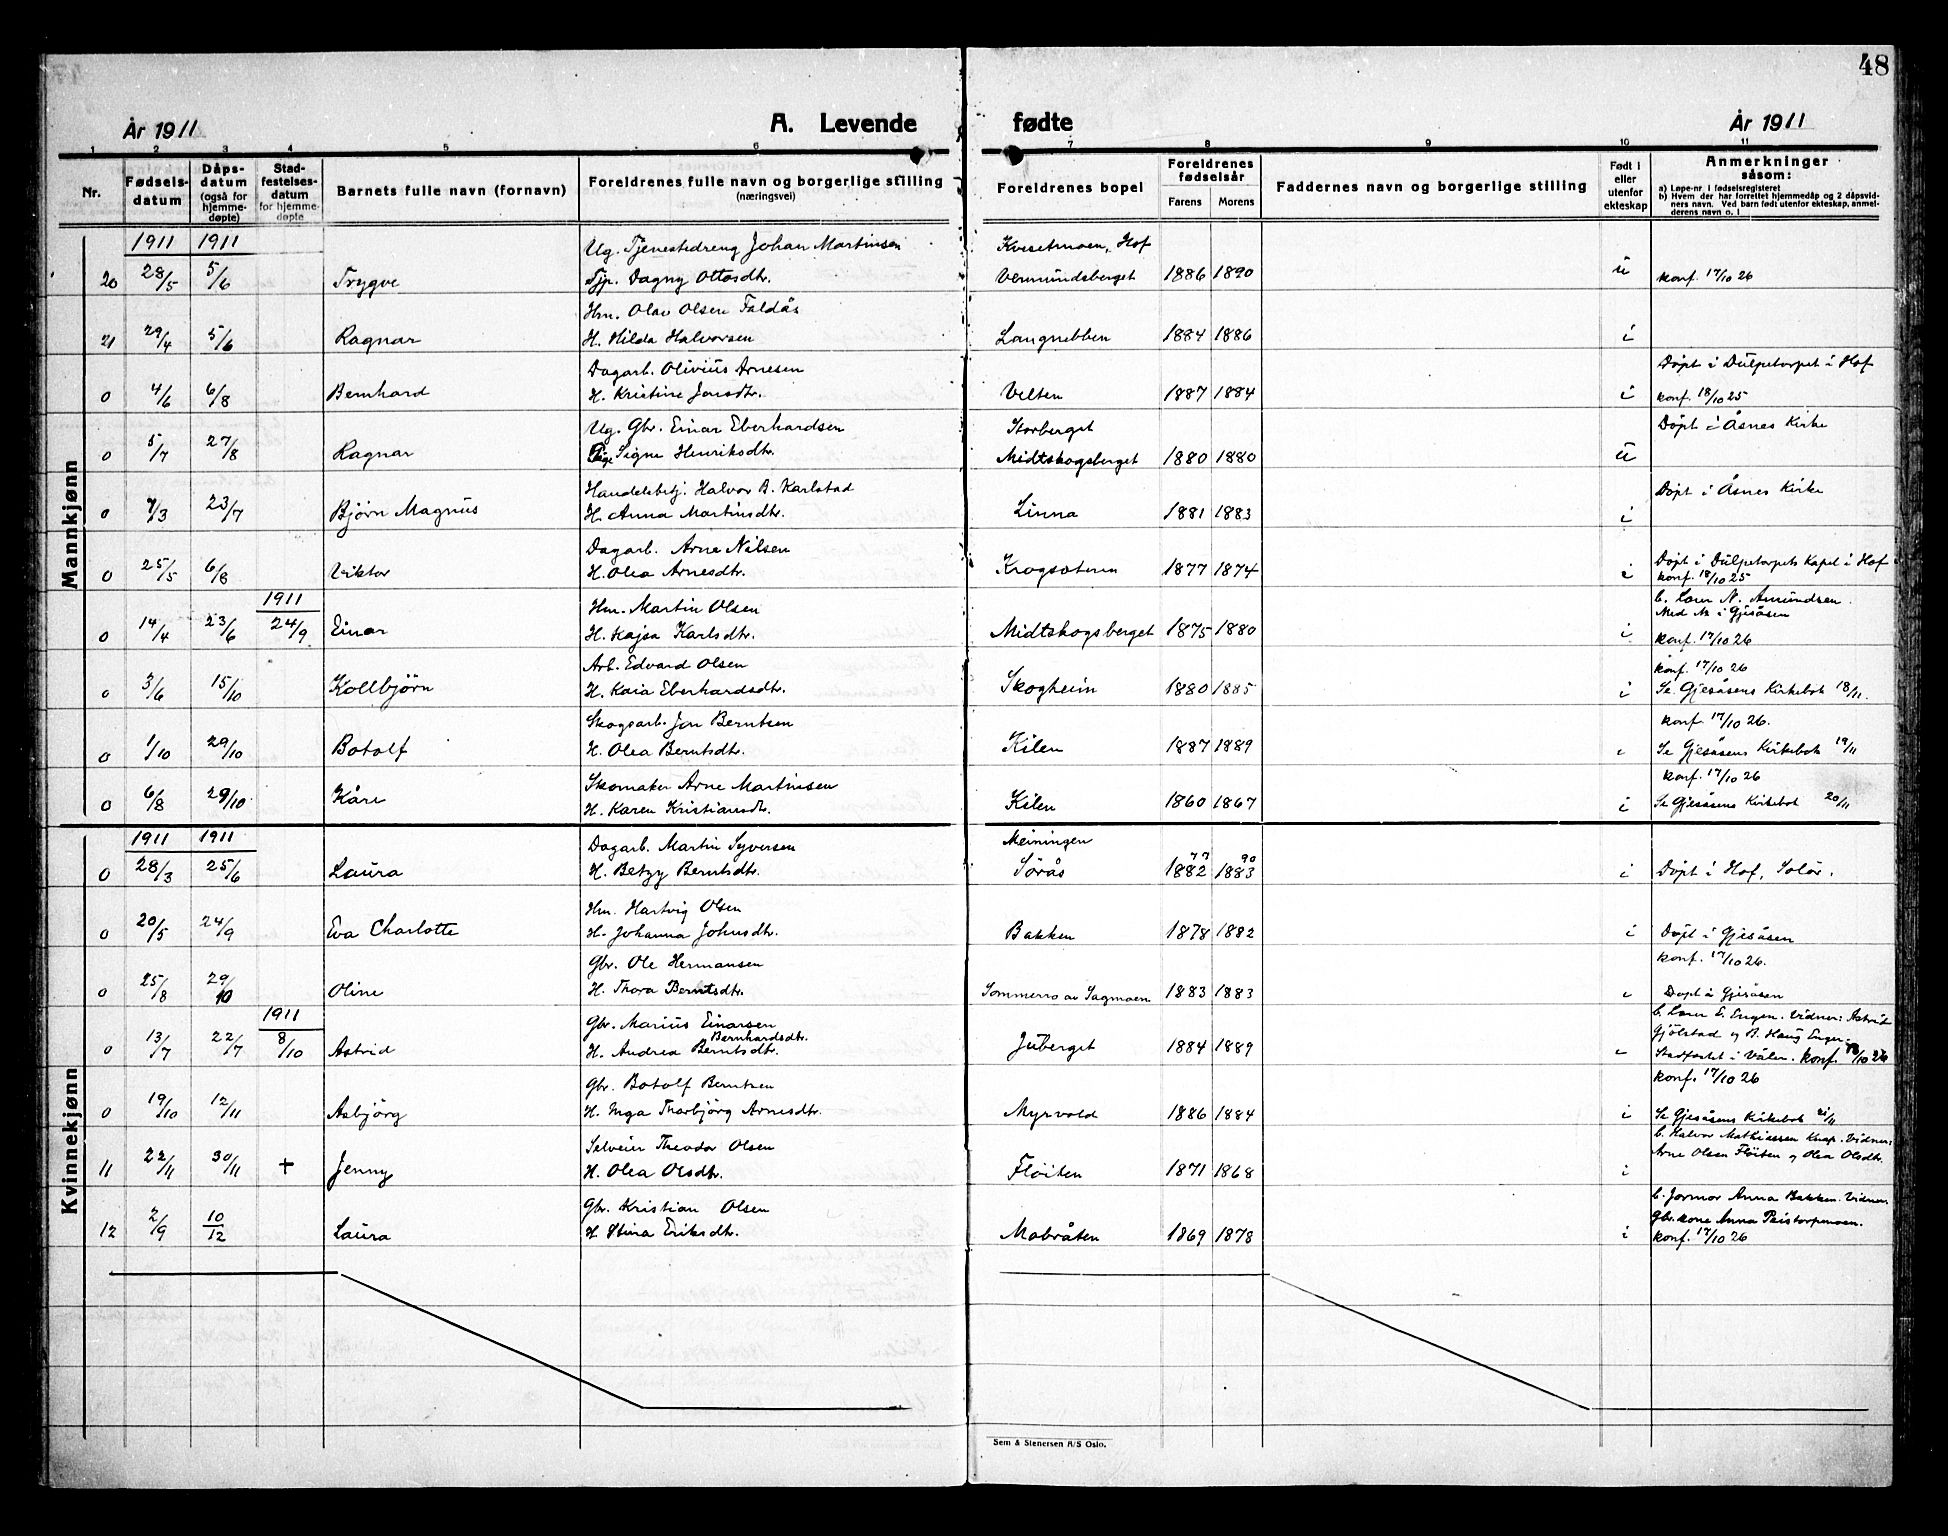 48
År 1911 A. Levende fødte År 1911
1 2 3 4 5 6 7 8 9 10 11
Nr. Fødsels-datum Dåps-datum (også for hjemme-døpte) Stad-festelses-datum for hjemme-døpte Barnets fulle navn (fornavn) Foreldrenes fulle navn og borgerlige stilling (næringsvei) Foreldrenes bopel Foreldrenes fødselsår Farens Morens Faddernes navn og borgerlige stilling Født i eller utenfor ekteskap Anmerkninger såsom:
a) Løpe-nr. i fødselsregisteret
b) Hvem der har forrettet hjemmedåp og 2 dåpsvidners navn. Ved barn født utenfor ekteskap, anmelderens navn o. l.
Mannkjønn
1911 1911 Ug. Tjenestedreng Johan Martinsen Kvesetmoen, Hof
20 28/5 5/6 Trygve Tjp. Dagny Ottosdtr. Vermundsberget 1886 1890 u konf. 17/10 26
Hm. Olav Olsen Faldås
21 29/4 5/6 Ragnar H. Hilda Halvorsen Langnebben 1884 1886 i
Dagarb. Olivius Arnesen Döpt i Dulpetorpet i Hof
0 4/6 6/8 Bernhard H. Kristine Jonsdtr. Velten 1887 1884 i konf. 18/10 25
Ug. Gbr. Einar Eberhardsen Storberget Döpt i Åsnes Kirke
0 5/7 27/8 Ragnar Pige Signe Henriksdtr. Midtskogsberget 1880 1880 u
Handelsbetj. Halvor B. Karlstad Döpt i Åsnes Kirke
0 7/3 23/7 Björn Magnus H. Anna Martinsdtr. Linna 1881 1883 i
Dagarb. Arne Nilsen Döpt i Dulpetorpets Kapel i Hof
0 25/5 6/8 Viktor H. Olea Arnesdtr. Krogsæteren 1877 1874 i konf. 18/10 25
1911 Hm. Martin Olsen b. Lærer N. Amundsen.
Med Nr i Gjesåsen
0 14/4 23/6 24/9 Einar H. Kajsa Karlsdtr. Midtskogsberget 1875 1880 i konf. 17/10 26
Arb. Edvard Olsen konf. 17/10 26
0 3/6 15/10 Kollbjörn H. Kaia Eberhardsdtr. Skogheim 1880 1885 i Se Gjesåsens Kirkebok 18/11.
Skogsarb. Jon Berntsen konf. 17/10 26.
0 1/10 29/10 Botolf H. Olea Berntsdtr. Kilen 1887 1889 i Se Gjesåsens Kirkebok 19/11
Skomaker Arne Martinsen konf. 17/10 26
0 6/8 29/10 Kåre H. Karen Kristiansdtr. Kilen 1860 1867 i Se Gjesåsens Kirkebok 20/11
Kvinnekjønn
1911 1911 Dagarb. Martin Syversen Meiningen 77 90
0 28/3 25/6 Laura H. Betzy Berntsdtr. Sörås 1882 1883 i Döpt i Hof, Solör.
Hm. Hartvig Olsen
0 20/5 24/9 Eva Charlotte H. Johanna Johnsdtr. Bakken 1878 1882 i Döpt i Gjesåsen
Gbr. Ole Hermansen konf. 17/10 26.
0 25/8 29/10 Oline H. Thora Berntsdtr. Sommerro av Sagmoen 1883 1883 i Döpt i Gjesåsen
1911 Gbr. Marius Einarsen b. Lærer E. Engen. Vidner: Astrid
Bernhardsdtr. Gjölstad og A. Haug Enger.
0 13/7 22/7 8/10 Astrid H. Andrea Berntsdtr. Juberget 1884 1889 i Stadfæstet i Våler. konf. /10 26
Gbr. Botolf Berntsen konf. 17/10 26
0 19/10 12/11 Asbjörg H. Inga Thorbjörg Arnesdtr. Myrvold 1886 1884 i Se Gjesåsens Kirkebok 21/11
Selveier Theodor Olsen b. Halvor Mathiassen Knap. Vidner:
Arne Olsen Flöiten og Olea Olsdtr.
11 22/11 30/11 + Jenny H. Olea Olsdtr. Flöiten 1871 1868 i
Gbr. Kristian Olsen b. Jormor Anna Bakken. Vidner
Gbr. kone Anna Peistorpmoen.
12 2/9 10/12 Laura H Stina Eriksdtr. Mobråten 1869 1878 i konf. 17/10 26
Sem & Stenersen A/S Oslo.